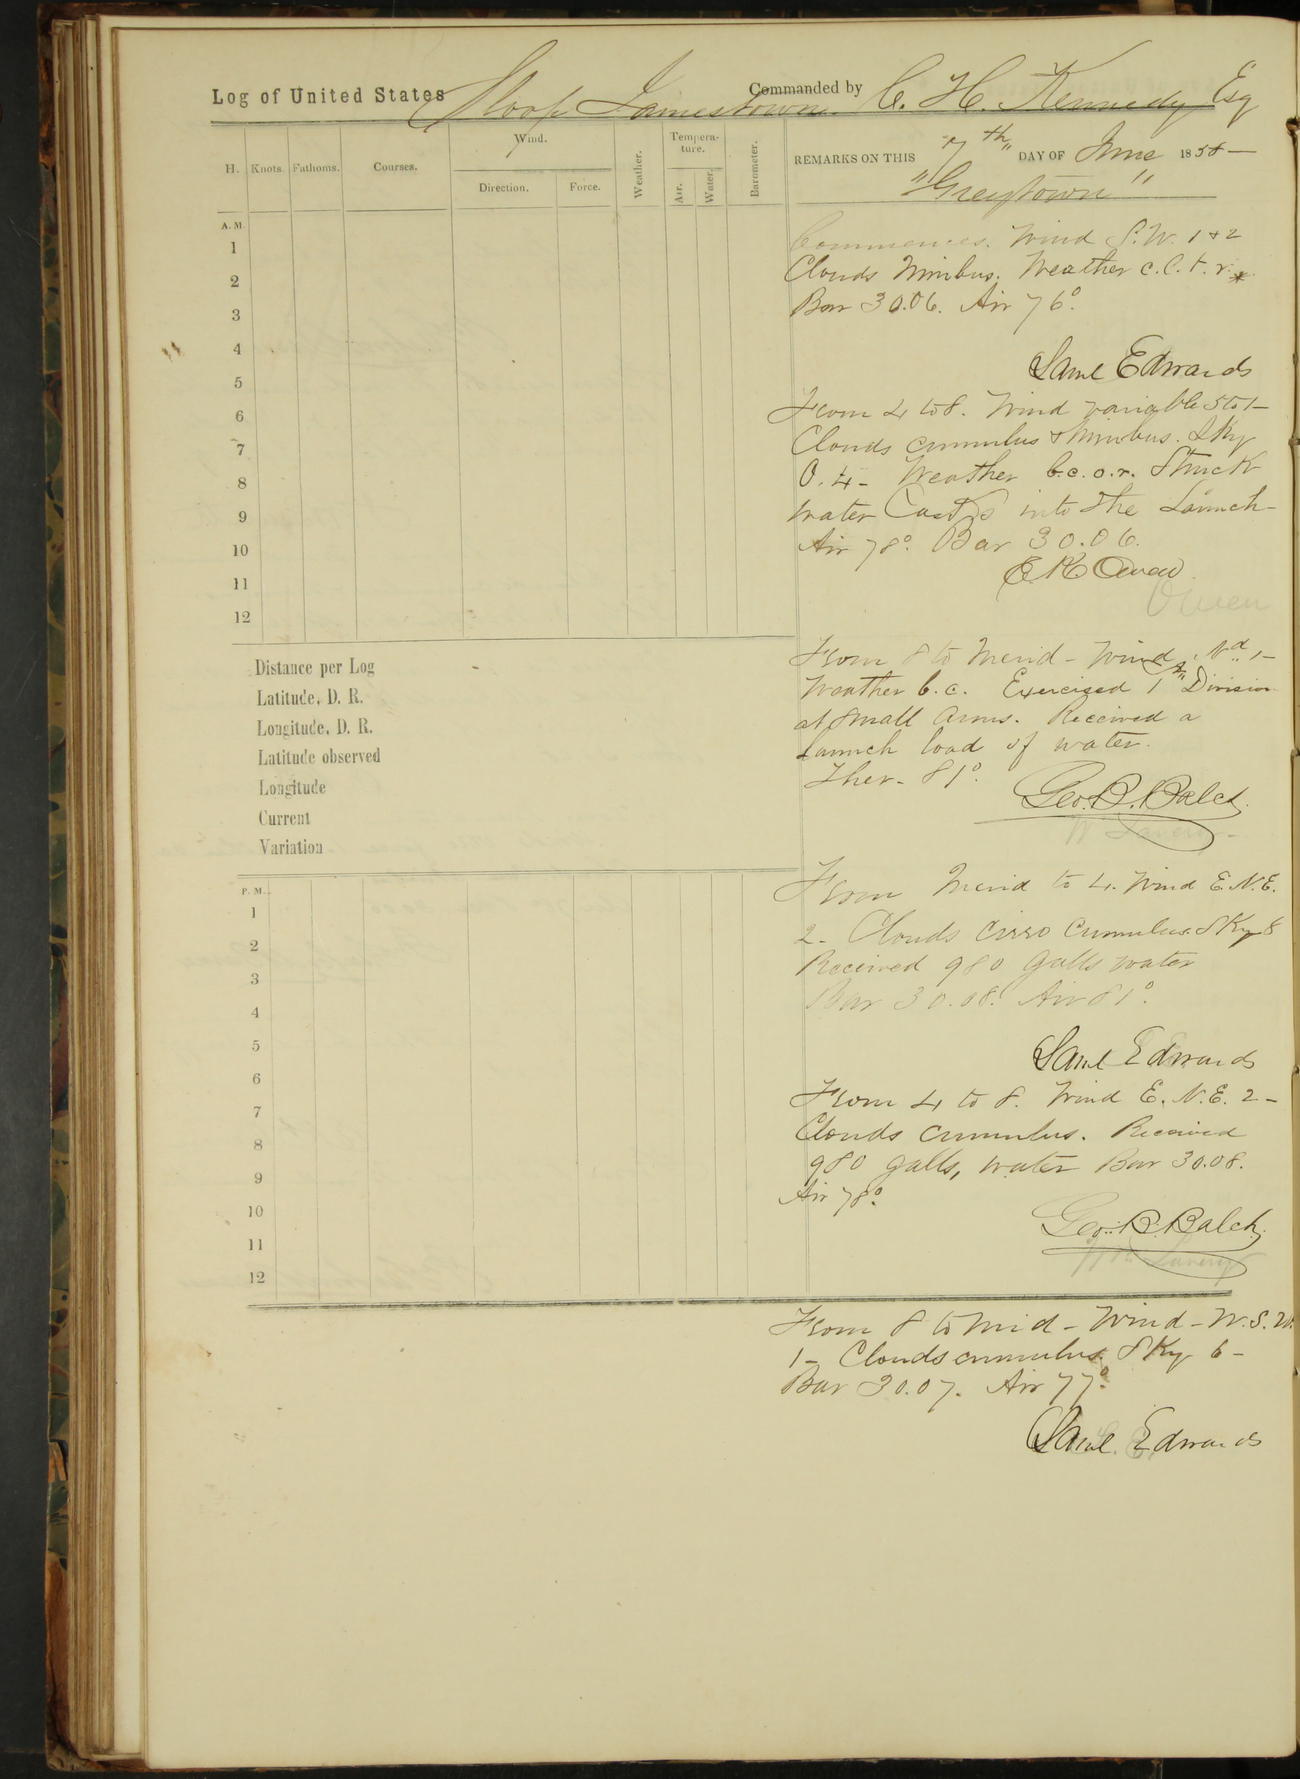 Log of United States Sloop Jamestown. Commanded by C. H. Kennedy Esq
H. Knots. Fathoms. Courses. Wind. Direction. Force. Weather. Tempera-ture. Air. Water. Barometer.
REMARKS ON THIS 7th DAY OF June 1858 —
"Greytown"
A. M.
1
2
3
4
5
6
7
8
9
10
11
12
Commences. Wind S.W. 1 & 2
Clouds Nimbus. Weather c.l.t.r.
Bar 30.06. Air 76°.
Saml Edwards
From 4 to 8. Wind variable 5 to 1 —
Clouds cumulus & Nimbus. Sky
0.4 — Weather b.c.o.r. Struck
water Casks into the Launch —
Air 78°. Bar 30.06.
E K Owen
Owen
From 8 to Merid — Wind Nd 1 —
Weather b.c. Exercised 1st Division
at Small Arms. Received a
launch load of water.
Ther — 81°.
Geo. B. Balch
Distance per Log
Latitude, D. R.
Longitude, D. R.
Latitude observed
Longitude
Current
Variation
P. M.
1
2
3
4
5
6
7
8
9
10
11
12
From Merid to 4. Wind E.N.E.
2 — Clouds Cirro Cumulus. Sky 8
Received 980 galls water
Bar 30.08. Air 81°.
Saml Edwards
From 4 to 8. Wind E.N.E. 2 —
Clouds cumulus. Received
980 galls, water Bar 30.08.
Air 78°.
Geo. B. Balch.
From 8 to Mid — Wind — W.S.W.
1 — Clouds cumulus. Sky 6 —
Bar 30.07. Air 77°.
Saml. Edwards